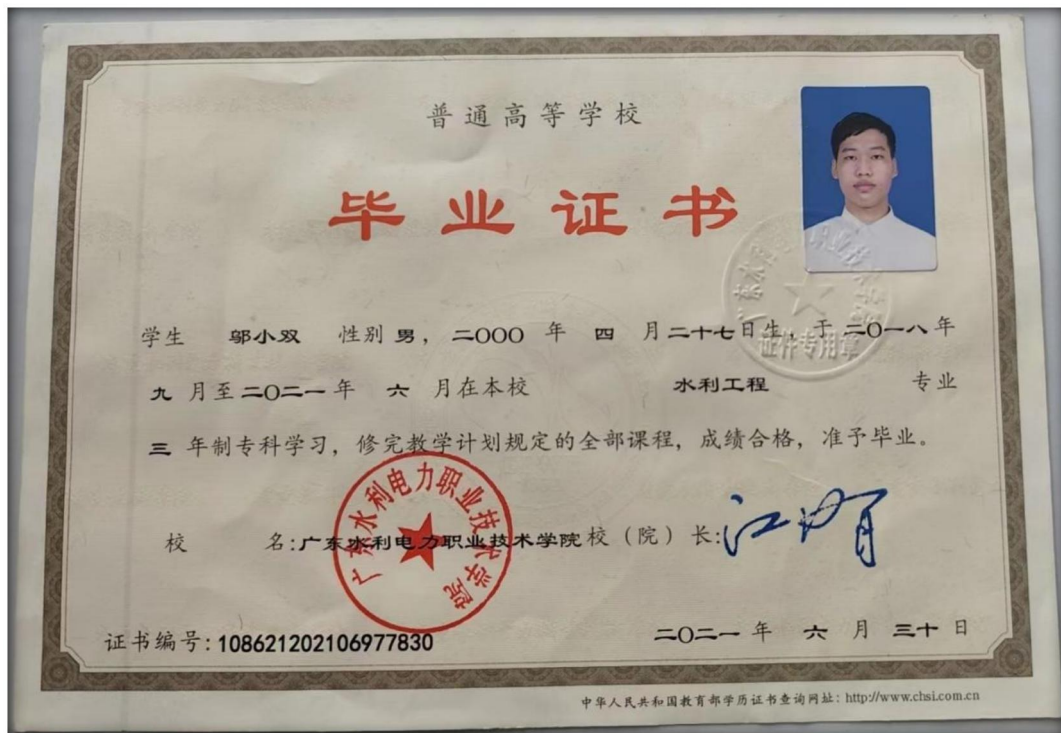 普通高等学校
毕业证书
学生 邬小双 性别 男，二〇〇〇 年 四 月二十七日生，于二〇一八年
九 月至二〇二一年 六 月在本校 水利工程 专业
三 年制专科学习，修完教学计划规定的全部课程，成绩合格，准予毕业。
校 名：广东水利电力职业技术学院 校（院）长：
广东水利电力职业技术学院
证件专用章
证书编号：108621202106977830
二〇二一 年 六 月 三十 日
中华人民共和国教育部学历证书查询网址：http://www.chsi.com.cn